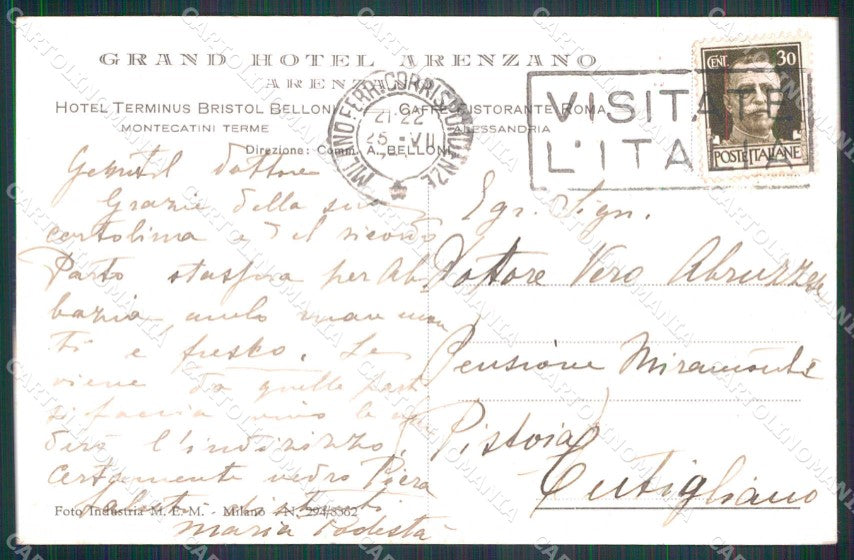 GRAND HOTEL ARENZANO
ARENZANO
HOTEL TERMINUS BRISTOL BELLONI
MONTECATINI TERME
CAFFÈ RISTORANTE ROMA
ALESSANDRIA
Direzione: Comm. A. BELLONI
MILANO FERR. CORRISPONDENZE
21-22
25-VII
VISITATE
L'ITALIA
CENT. 30
POSTE ITALIANE
Gentil dottore
Grazie della sua
cartolina e del ricordo
Parto stasera per Ab
bazia,
ti e fresco. Se
viene da quelle parti
si faccia vivo le
derò l'indirizzo,
certamente vedrò Piera
Saluti distinti
Maria Podestà
Egr. Sign.
Dottore Vero Abruzzese
Pensione Miramonti
Pistoia
Cutigliano
Foto Industria M. E. M. - Milano - N. 294/8362
CARTOLINOMANIA